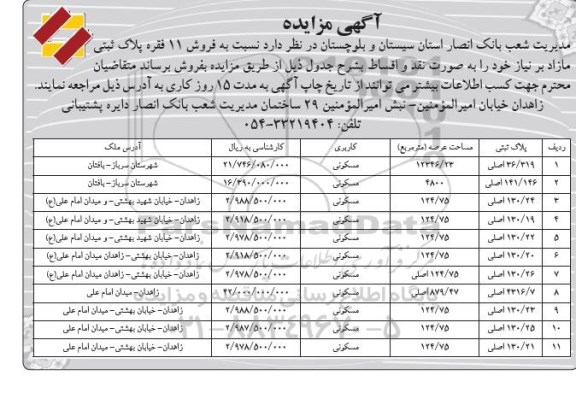 آگهی مزایده
مدیریت شعب بانک انصار استان سیستان و بلوچستان در نظر دارد نسبت به فروش ۱۱ فقره پلاک ثبتی
مازاد بر نیاز خود را به صورت نقد و اقساط بشرح جدول ذیل از طریق مزایده بفروش برساند متقاضیان
محترم جهت کسب اطلاعات بیشتر می توانند از تاریخ چاپ آگهی به مدت ۱۵ روز کاری به آدرس ذیل مراجعه نمایند.
زاهدان خیابان امیرالمؤمنین- نبش امیرالمؤمنین ۲۹ ساختمان مدیریت شعب بانک انصار دایره پشتیبانی
تلفن: ۳۳۲۱۹۴۰۴-۰۵۴
ردیف پلاک ثبتی مساحت عرصه (مترمربع) کاربری کارشناسی به ریال آدرس ملک
۱ ۳۶/۳۱۹ اصلی ۱۲۳۴۶/۲۳ مسکونی ۲۱/۷۴۶/۰۸۰/۰۰۰ شهرستان سرباز- بافتان
۲ ۱۴۱/۱۴۶ اصلی ۴۸۰۰ مسکونی ۱۶/۳۹۰/۰۰۰/۰۰۰ شهرستان سرباز- بافتان
۳ ۱۳۰/۲۴ اصلی ۱۲۴/۷۵ مسکونی ۲/۹۸۸/۵۰۰/۰۰۰ زاهدان- خیابان شهید بهشتی- و میدان امام علی(ع)
۴ ۱۳۰/۱۹ اصلی ۱۲۴/۷۵ مسکونی ۲/۹۱۸/۵۰۰/۰۰۰ زاهدان- خیابان شهید بهشتی- و میدان امام علی(ع)
۵ ۱۳۰/۲۲ اصلی ۱۲۴/۷۵ مسکونی ۲/۹۷۸/۵۰۰/۰۰۰ زاهدان- خیابان شهید بهشتی- و میدان امام علی(ع)
۶ ۱۳۰/۲۰ اصلی ۱۲۴/۷۵ مسکونی ۲/۹۱۸/۵۰۰/۰۰۰ زاهدان- خیابان شهید بهشتی- زاهدان میدان امام علی(ع)
۷ ۱۳۰/۲۶ اصلی ۱۲۴/۷۵ اصلی مسکونی ۲/۹۷۸/۵۰۰/۰۰۰ زاهدان- خیابان شهید بهشتی- زاهدان میدان امام علی(ع)
۸ ۴۳۱۶/۷ اصلی ۸۷۹/۴۷ اصلی مسکونی ۴۲/۰۰۰/۰۰۰/۰۰۰ زاهدان- میدان امام علی
۹ ۱۳۰/۲۳ اصلی ۱۲۴/۷۵ مسکونی ۲/۹۸۸/۵۰۰/۰۰۰ زاهدان- خیابان بهشتی- میدان امام علی
۱۰ ۱۳۰/۲۵ اصلی ۱۲۴/۷۵ مسکونی ۲/۹۸۷/۵۰۰/۰۰۰ زاهدان- خیابان بهشتی- میدان امام علی
۱۱ ۱۳۰/۲۱ اصلی ۱۲۴/۷۵ مسکونی ۲/۹۷۸/۵۰۰/۰۰۰ زاهدان- خیابان بهشتی- میدان امام علی
ParsNamadData
پایگاه اطلاع رسانی مناقصه و مزایده